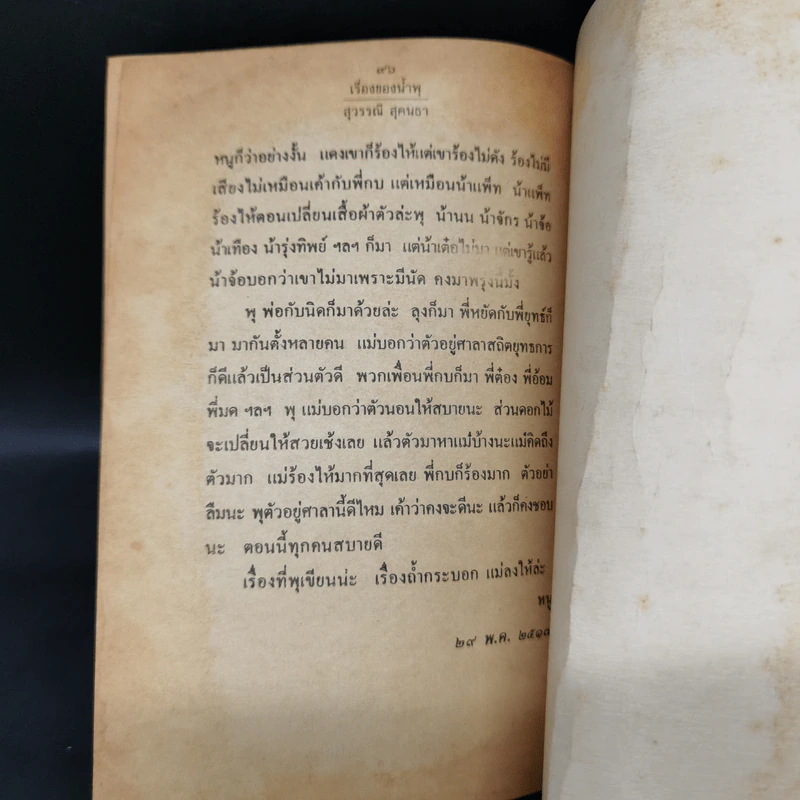 ๙๖
เรื่องของน้ำพุ
สุวรรณี สุคนธา
หนูก็ว่าอย่างงั้น แดงเขาก็ร้องไห้แต่เขาร้องไม่ดัง ร้องไม่มี
เสียงไม่เหมือนเค้ากับพี่กบ แต่เหมือนน้าแพ็ท น้าแพ็ท
ร้องไห้ตอนเปลี่ยนเสื้อผ้าตัวล่ะพุ น้านน น้าจักร น้าจ้อ
น้าเทือง น้ารุ่งทิพย์ ฯลฯ ก็มา แต่น้าเต๋อไม่มา แต่เขารู้แล้ว
น้าจ้อบอกว่าเขาไม่มาเพราะมีนัด คงมาพรุ่งนี้มั้ง
พุ พ่อกับนิดก็มาด้วยล่ะ ลุงก็มา พี่หยัดกับพี่ยุทธ์ก็
มา มากันตั้งหลายคน แม่บอกว่าตัวอยู่ศาลาสถิตยุทธการ
ก็ดีแล้วเป็นส่วนตัวดี พวกเพื่อนพี่กบก็มา พี่ต๋อง พี่อ้อม
พี่มด ฯลฯ พุ แม่บอกว่าตัวนอนให้สบายนะ ส่วนดอกไม้
จะเปลี่ยนให้สวยเช้งเลย แล้วตัวมาหาแม่บ้างนะแม่คิดถึง
ตัวมาก แม่ร้องไห้มากที่สุดเลย พี่กบก็ร้องมาก ตัวอย่า
ลืมนะ พุตัวอยู่ศาลานี้ดีไหม เค้าว่าคงจะดีนะ แล้วก็คงชอบ
นะ ตอนนี้ทุกคนสบายดี
เรื่องที่พุเขียนน่ะ เรื่องถ้ำกระบอก แม่ลงให้ล่ะ
หนู
๒๙ พ.ค. ๒๕๑๗